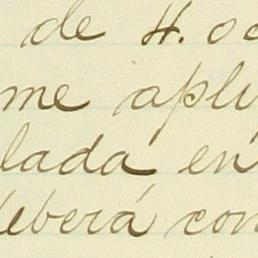 de H. oc
me apli
lada en
deberá con